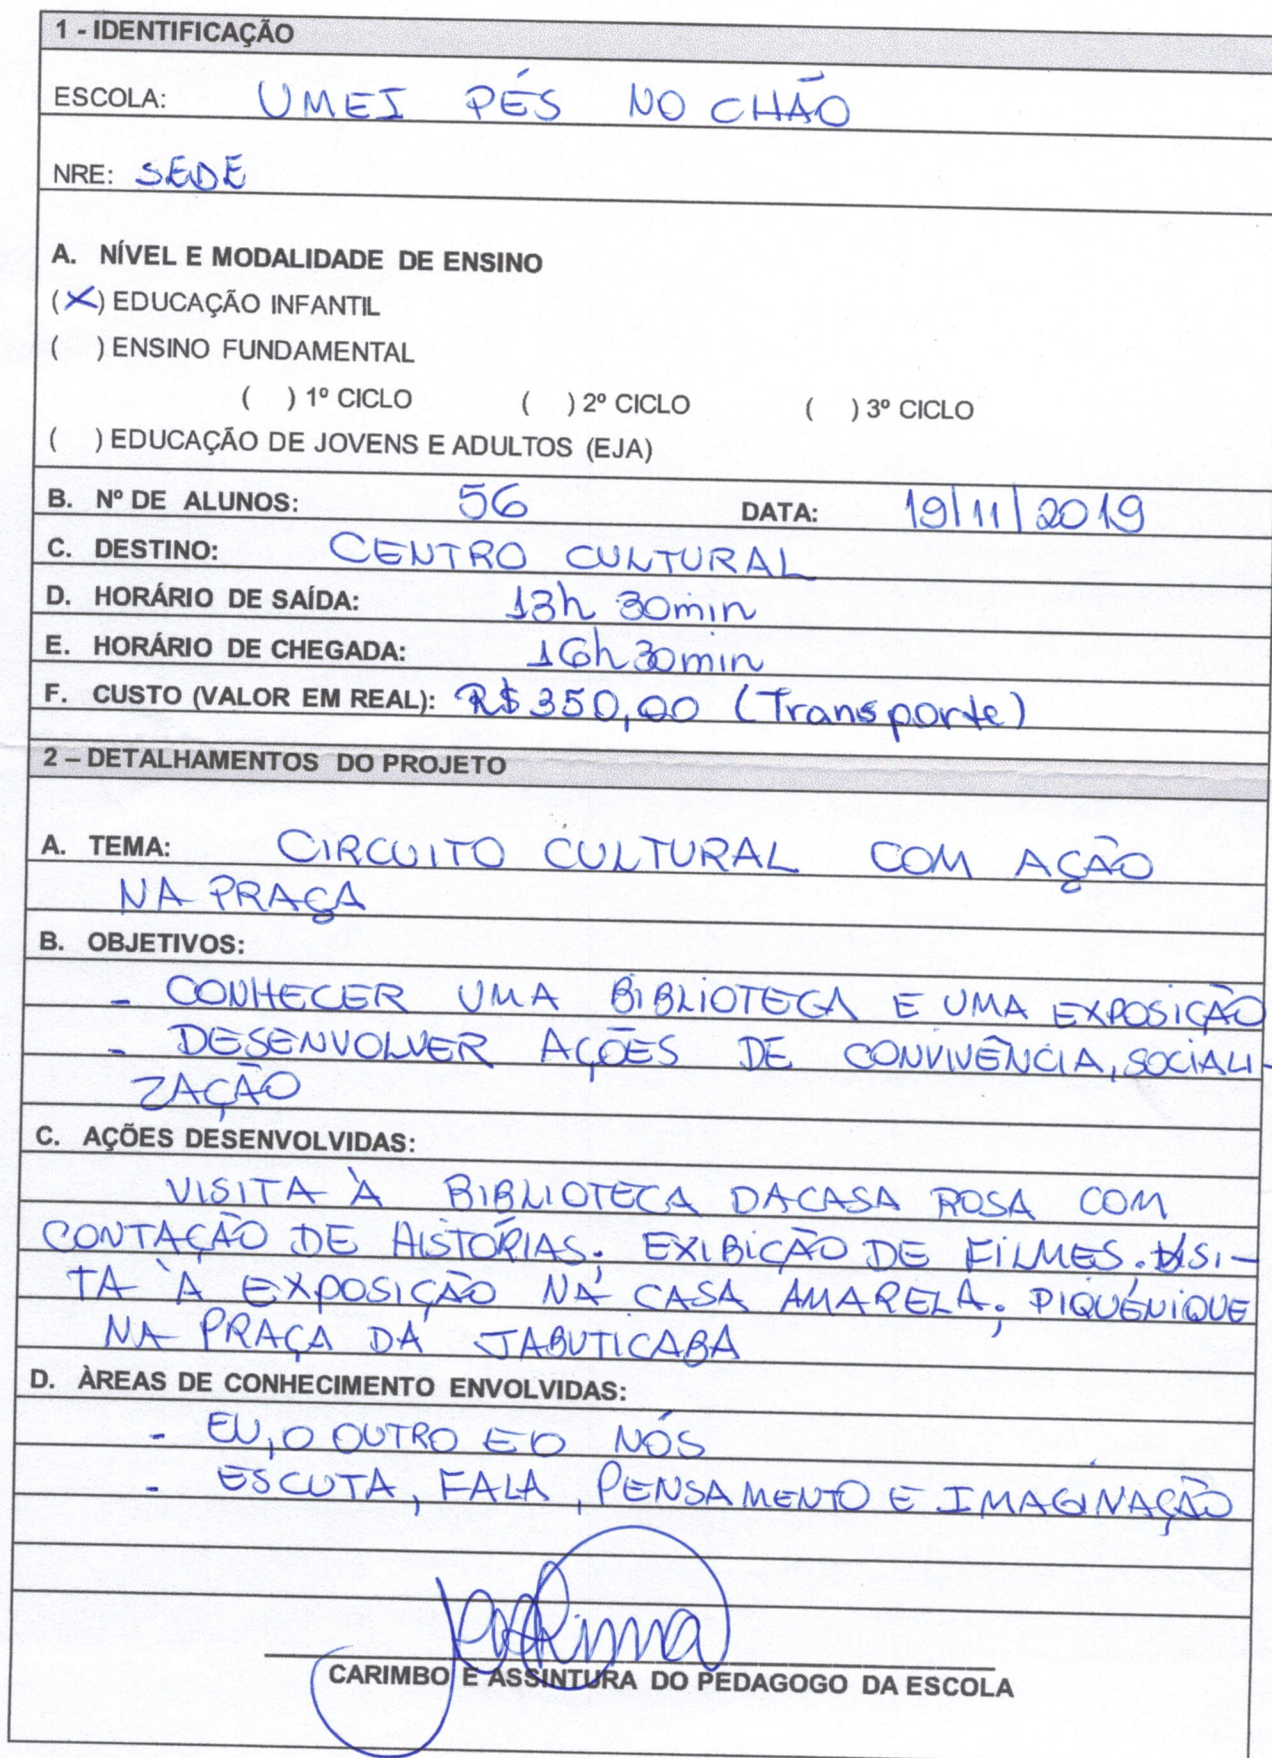 1 - IDENTIFICAÇÃO
ESCOLA: UMEI PÉS NO CHÃO
NRE: SEDE
A. NÍVEL E MODALIDADE DE ENSINO
(X) EDUCAÇÃO INFANTIL
( ) ENSINO FUNDAMENTAL
( ) 1º CICLO ( ) 2º CICLO ( ) 3º CICLO
( ) EDUCAÇÃO DE JOVENS E ADULTOS (EJA)
B. Nº DE ALUNOS: 56 DATA: 19/11/2019
C. DESTINO: CENTRO CULTURAL
D. HORÁRIO DE SAÍDA: 13h 30min
E. HORÁRIO DE CHEGADA: 16h30min
F. CUSTO (VALOR EM REAL): R$350,00 (Transporte)
2 – DETALHAMENTOS DO PROJETO
A. TEMA: CIRCUITO CULTURAL COM AÇÃO
NA PRAÇA
B. OBJETIVOS:
- CONHECER UMA BIBLIOTECA E UMA EXPOSIÇÃO
- DESENVOLVER AÇÕES DE CONVIVÊNCIA, SOCIALI-
ZAÇÃO
C. AÇÕES DESENVOLVIDAS:
VISITA À BIBLIOTECA DA CASA ROSA COM
CONTAÇÃO DE HISTÓRIAS; EXIBIÇÃO DE FILMES. VISI-
TA À EXPOSIÇÃO NA CASA AMARELA; PIQUÉNIQUE
NA PRAÇA DA JABUTICABA
D. ÀREAS DE CONHECIMENTO ENVOLVIDAS:
- EU, O OUTRO E O NÓS
- ESCUTA, FALA, PENSAMENTO E IMAGINAÇÃO
CARIMBO E ASSINTURA DO PEDAGOGO DA ESCOLA